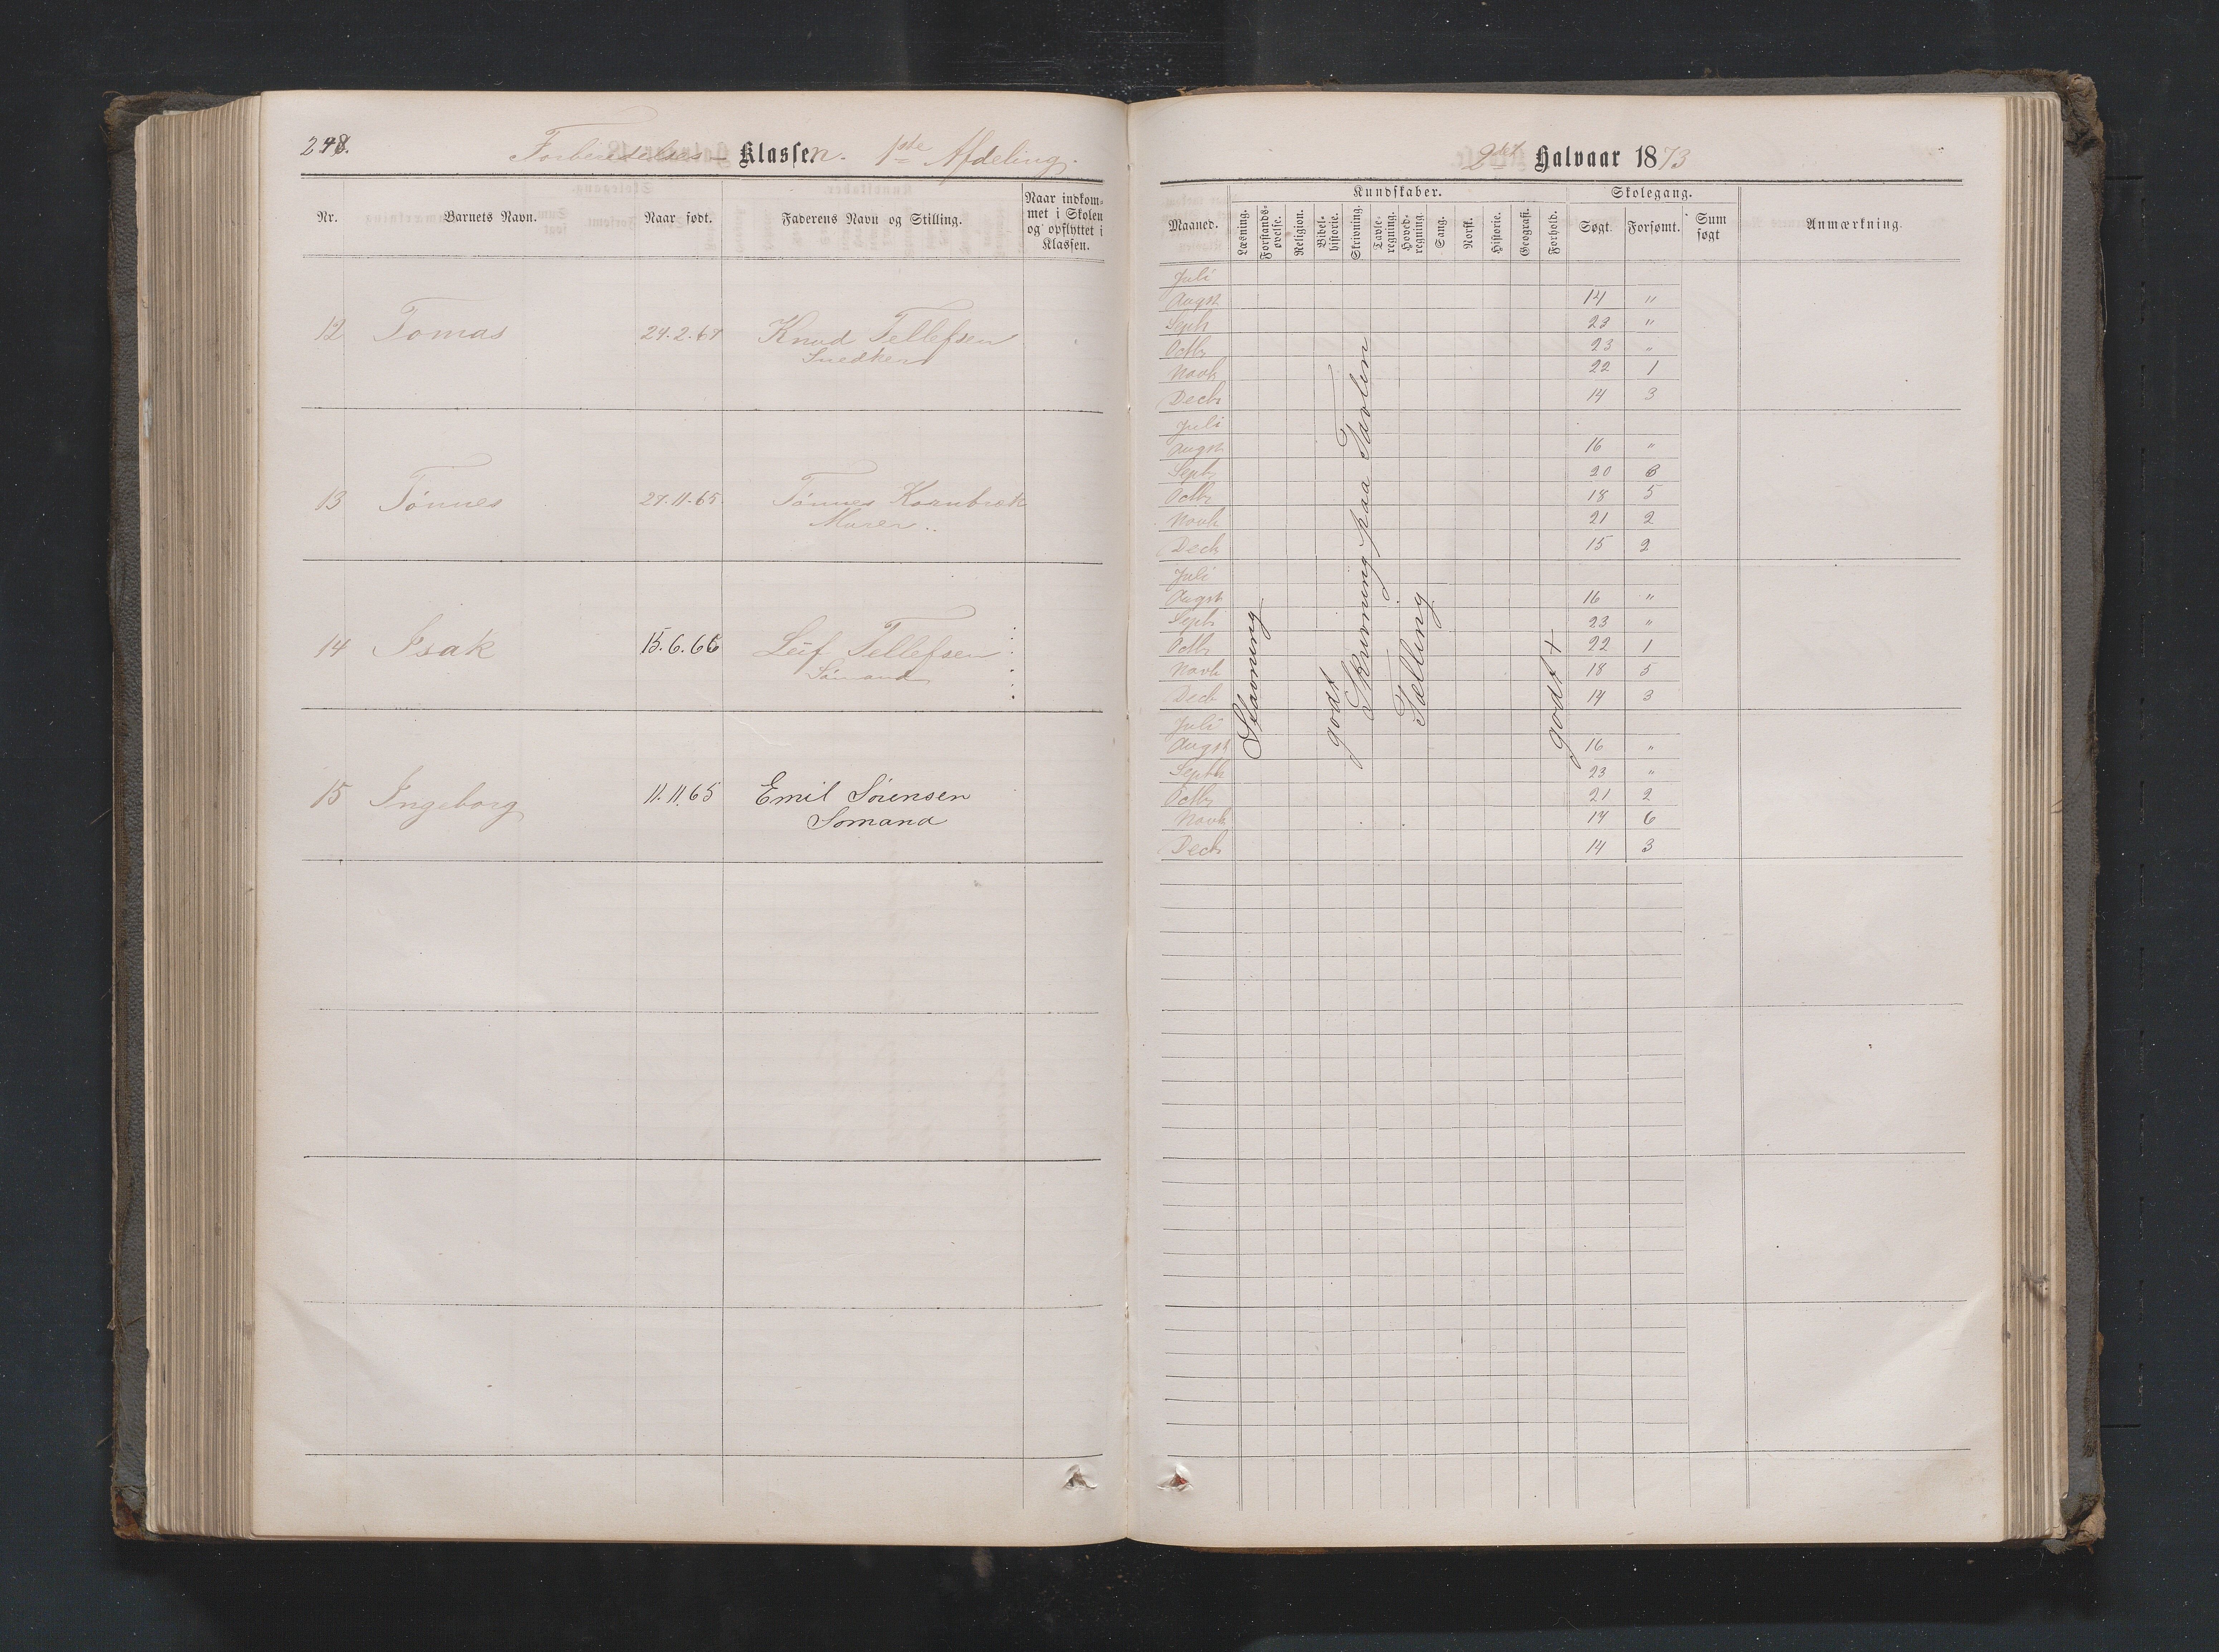 248.
Forberedelses- Klassen. 1ste Afdeling.
Nr. Barnets Navn. Naar født. Faderens Navn og Stilling. Naar indkom- met i Skolen og opflyttet i Klassen.
12 Tomas 24.2.67 Knud Tellefsen
Snedker
13 Tønnes 27.11.65 Tønnes Kornbrek
Murer
14 Isak 15.6.66 Leif Tellefsen
Sømand
15 Ingeborg 11.11.65 Emil Sørensen
Sømand
2det Halvaar 1873
Kundskaber. Skolegang.
Maaned. Læsning. Forstands- øvelse. Religion. Bibel- historie. Skrivning. Tavle- regning. Hoved- regning. Sang. Norsk. Historie. Geografi. Forhold. Søgt. Forsømt. Sum søgt Anmærkning.
Juli
Augst 14 "
Septb 23 "
Octbr 23 "
Novb 22 1
Decbr 14 3
Juli
Augst 16 "
Septb 20
Octbr 18 5
Novb 21 2
Decb 15 2
Juli
Augst 16 "
Septb 23 "
Octbr 22 1
Novb 18 5
Decb 14 3
Juli
Augst 16 "
Septb 23 "
Octbr 21 2
Novb 17 6
Decb 14 3
Stavning
godt
Skrivning paa Tavlen
Tælling
godt +